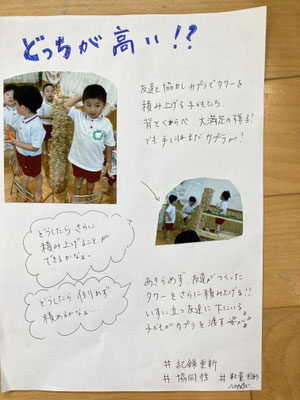 どっちが高い!?
友達と協力しカプラでタワーを
積み上げる子どもたち。
背とくらべ、大満足の様子!
でも手にはまだカプラが!
どうしたら さらに
積み上げることが
できるかなぁー
どうしたら 作りおれず
積めるかなぁ…
あきらめず、友達がつくった
タワーをさらに積み上げる!!
いすに立つ友達に下にいる
子どもがカプラを渡す姿が
#記録更新
#協同性
#数量